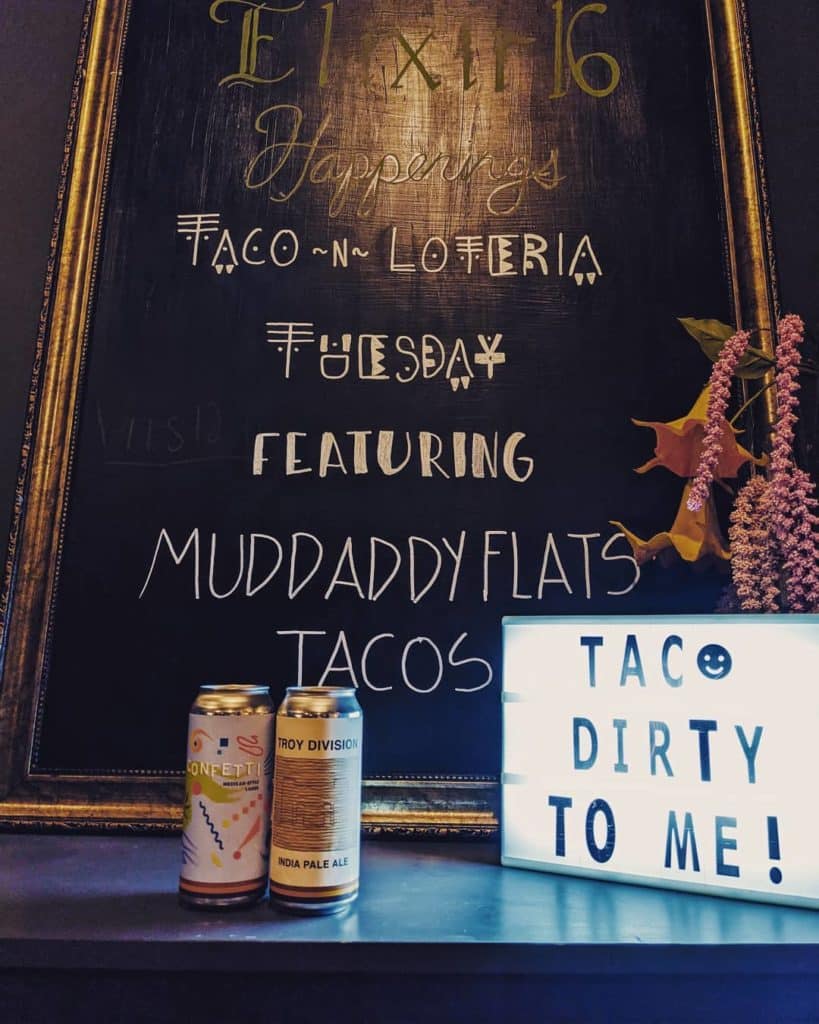 Elixir 16
Happenings
TACO ~N~ LOTERIA
TUESDAY
FEATURING
MUDDADDYFLATS
TACOS
CONFETTI
MEXICAN-STYLE
LAGER
TROY DIVISION
INDIA PALE ALE
TAC☻
DIRTY
TO ME!